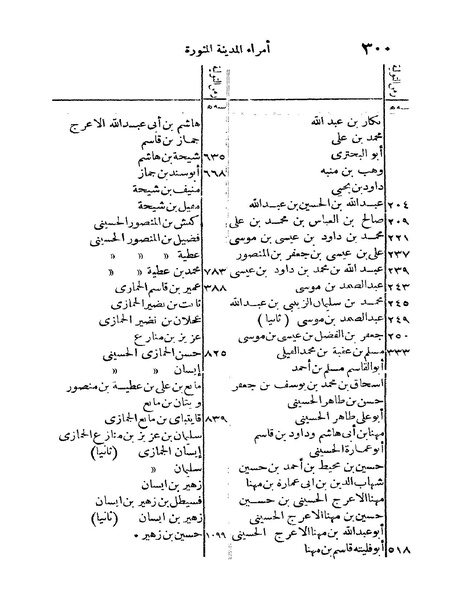 ٣٠٠
أمراء المدينة المنورة
زمن التولية
سنة
بكار بن عبد الله
محمد بن على
أبو البخترى
وهب بن منبه
داود بن يحيى
٢٠٤ عبد الله بن الحسين بن عبد الله
٢٠٩ صالح بن العباس بن محمد بن على
٢٢١ محمد بن داود بن عيسى بن موسى
٢٣٧ على بن عيسى بن جعفر بن المنصور
٢٣٩ عبد الله بن محمد بن داود بن عيسى
٢٤٣ عبد الصمد بن موسى
٢٤٥ محمد بن سليمان الزينبى بن عبد الله
٢٤٩ عبد الصمد بن موسى (ثانيا)
٢٥٠ جعفر بن الفضل بن عيسى بن موسى
٣٣٣ مسلم بن عقبة بن محمد
أبو القاسم مسلم بن أحمد
اسحاق بن محمد بن يوسف بن جعفر
حسن بن طاهر الحسينى
أبو على طاهر الحسينى
مهنا بن أبى هاشم وداود بن قاسم
أبو عمارة الحسينى
حسين بن مخيط بن أحمد بن حسين
شهاب الدين بن ابى عمارة بن مهنا
مهنا الاعرج الحسينى بن حسين
حسين بن مهنا الاعرج الحسينى
أبو عبد الله بن مهنا الاعرج الحسينى
٥١٨ أبو فليته قاسم بن مهنا
زمن التولية
سنة
هاشم بن أبى عبد الله الاعرج
جماز بن قاسم
٦٣٥ شيحة بن هاشم
٦٦٨ أبو سند بن جماز
منيف بن شيحة
مقبل بن شيحة
كبش بن المنصور الحسينى
فضيل بن المنصور الحسينى
عطية » » »
٧٨٣ محمد بن عطية » »
٣٨٨ عمير بن قاسم الجمازى
ثابت بن نضير الجمازى
عجلان بن نضير الجمازى
عزيز بن منازع
٨٢٥ حسن الجمازى الحسينى
إيسان » »
مانع بن على بن عطية بن منصور
وبنيان بن مانع
٨٣٩ قايتباى بن مانع الجمازى
سليمان بن عزيز بن منازع الجمازى
إيسان الجمازى (ثانيا)
سليمان »
زهير بن ايسان
قسيطل بن زهير بن ايسان
زهير بن ايسان (ثانيا)
١٠٩٩ حسين بن زهير .